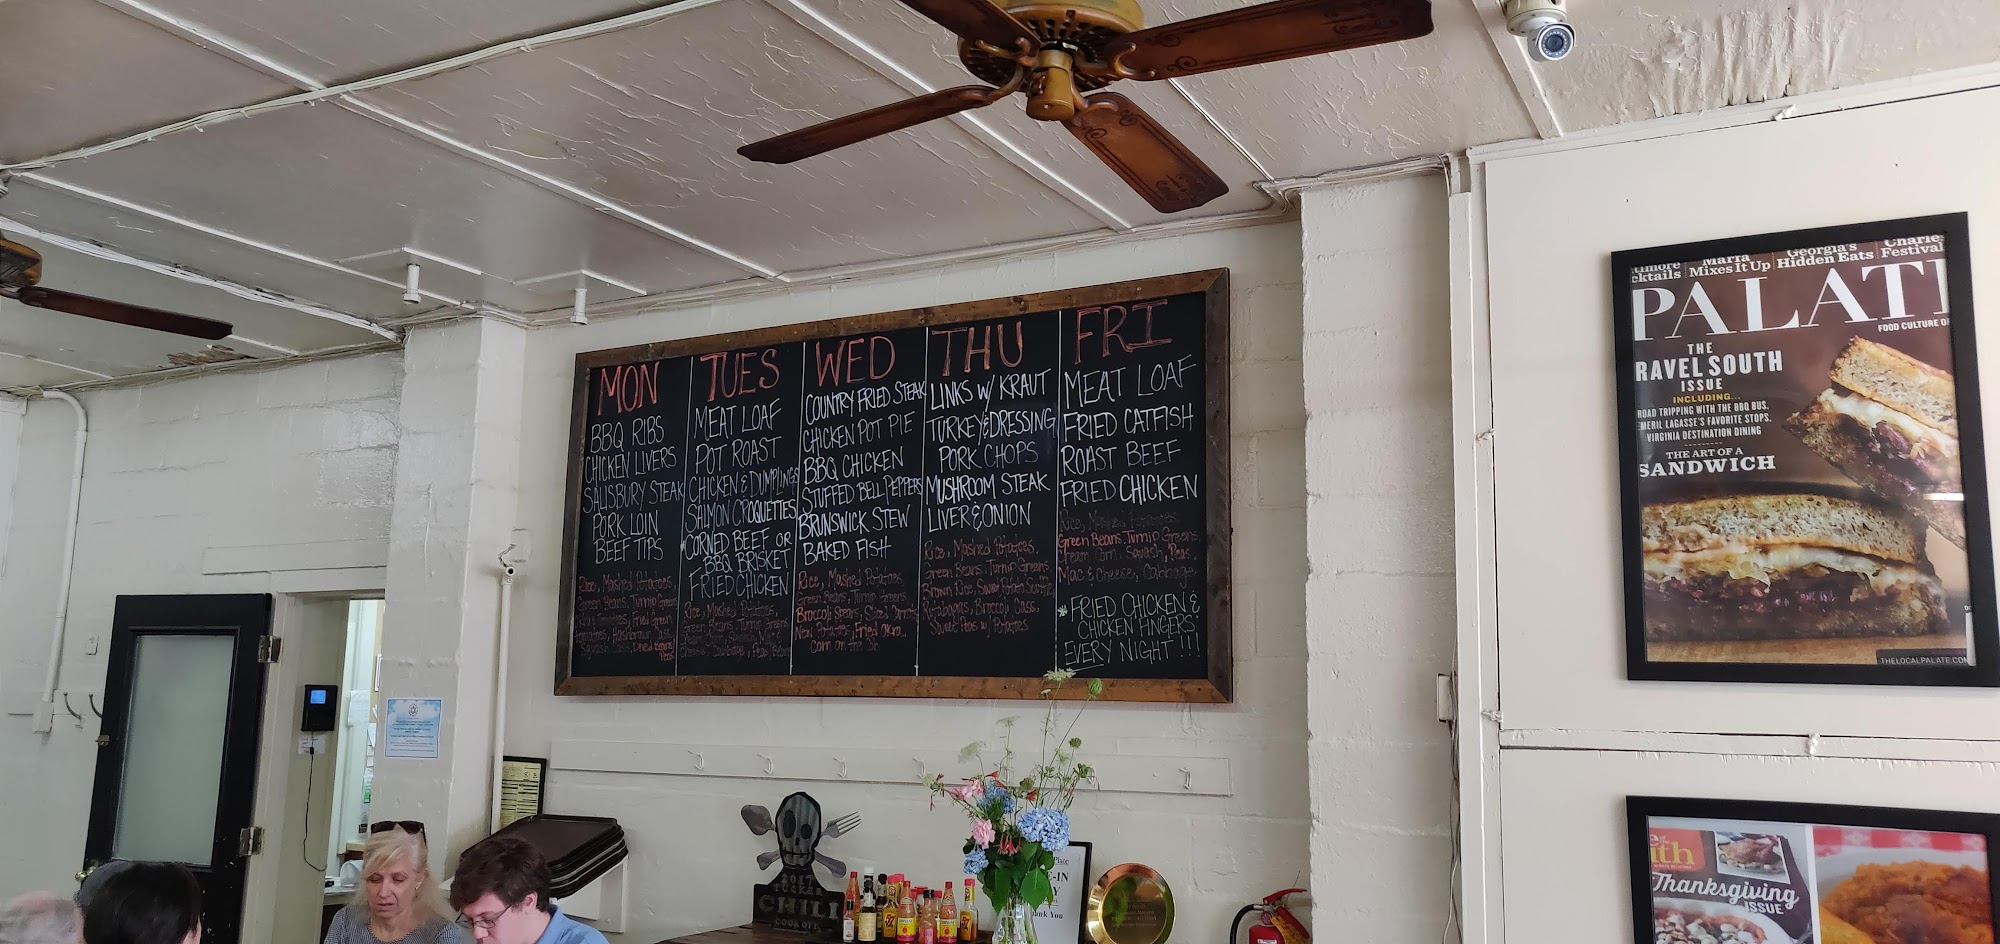 MON
BBQ RIBS
CHICKEN LIVERS
SALISBURY STEAK
PORK LOIN
BEEF TIPS
Rice, Mashed Potatoes,
Green Beans, Turnip Greens
Tomatoes, Hashbrown Cass.
Squash Cass., Dried Beans
Peas
TUES
MEAT LOAF
POT ROAST
CHICKEN & DUMPLINGS
SALMON CROQUETTES
*CORNED BEEF OR
BBQ BRISKET
FRIED CHICKEN
Rice, Mashed Potatoes,
Green Beans, Turnip Greens
Cheese, Cabbage, Peas
WED
COUNTRY FRIED STEAK
CHICKEN POT PIE
BBQ CHICKEN
STUFFED BELL PEPPERS
BRUNSWICK STEW
BAKED FISH
Rice, Mashed Potatoes,
Green Beans, Turnip Greens
Broccoli Spears, Carrots
New Potatoes, Fried Okra
Corn on the Cob
THU
LINKS W/ KRAUT
TURKEY & DRESSING
PORK CHOPS
MUSHROOM STEAK
LIVER & ONION
Rice, Mashed Potatoes,
Green Beans, Turnip Greens
Brown Rice, Sweet Potato Souffle
Rutabagas, Broccoli Cass.
Sweet Peas w/ Potatoes
FRI
MEAT LOAF
FRIED CATFISH
ROAST BEEF
FRIED CHICKEN
Rice, Mashed Potatoes
Green Beans, Turnip Greens,
Cream Corn, Squash, Peas,
Mac & Cheese, Cabbage
*FRIED CHICKEN &
CHICKEN FINGERS
EVERY NIGHT!!!
timore
cktails
Maria
Mixes It Up
Georgia's
Hidden Eats
Charle
Festival
PALAT
FOOD CULTURE O
THE
RAVEL SOUTH
ISSUE
INCLUDING...
ROAD TRIPPING WITH THE BBQ BUS.
EMERIL LAGASSE'S FAVORITE STOPS.
VIRGINIA DESTINATION DINING
THE ART OF A
SANDWICH
THELOCALPALATE.COM
2017
TUCKER
CHILI
COOKOFF
Plate
E-IN
Y
nk You
th
Thanksgiving
ISSUE